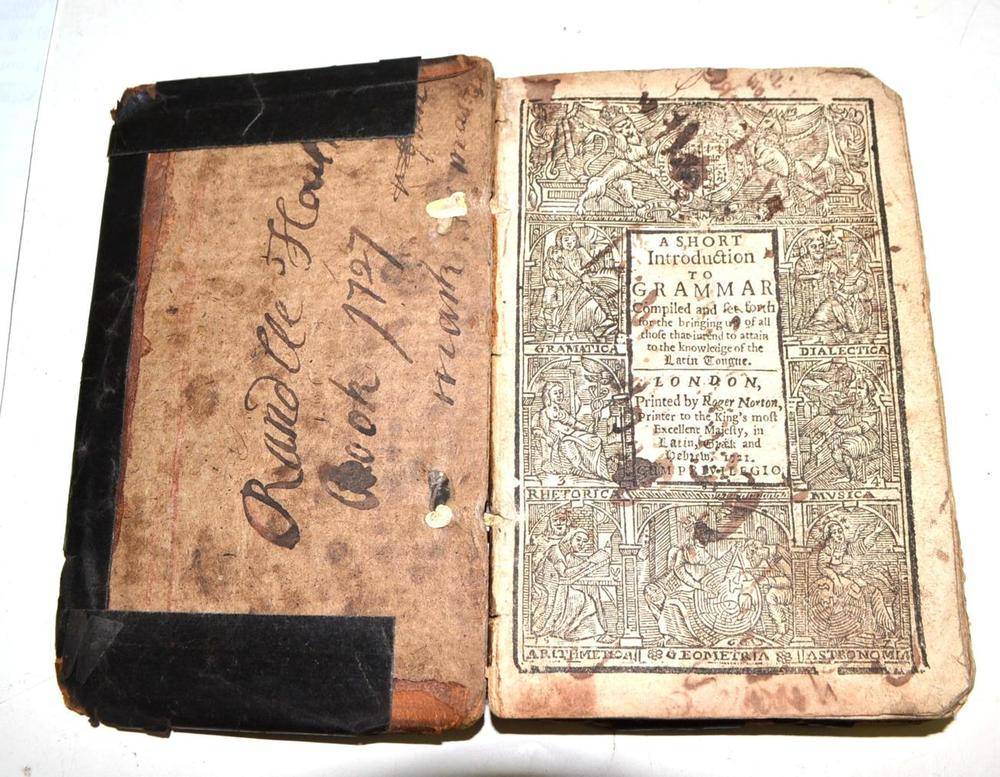 Randlle
Book 1727
mark
A SHORT
Introduction
TO
GRAMMAR
Compiled and set forth
for the bringing up of all
those that intend to attain
to the knowledge of the
Latin Tongue.
LONDON,
Printed by Roger Norton,
Printer to the King's moſt
Excellent Majeſty, in
Latin, Greek and
Hebrew. 1721.
CUM PRIVILEGIO
GRAMATICA
DIALECTICA
3
4
RHETORICA
MVSICA
6
ARITHMETICA
GEOMETRIA
ASTRONOMIA